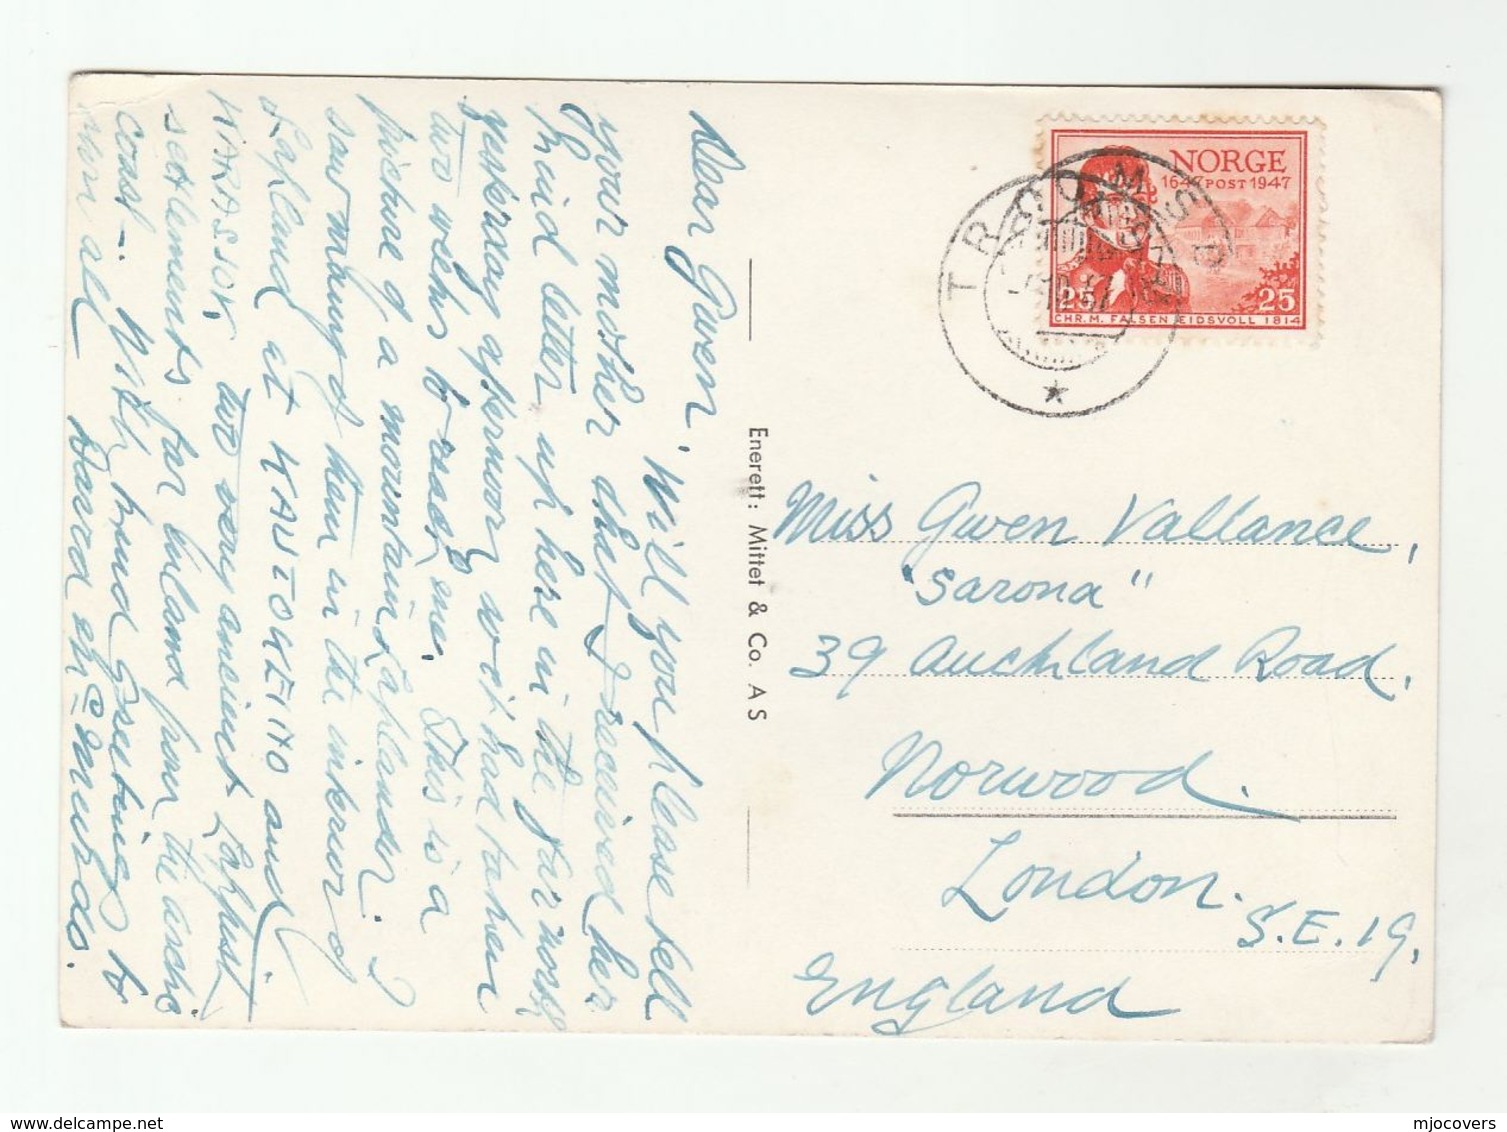 Dear Gwen, Will you please tell
your mother that I received her
kind letter up here in the far north
yesterday afternoon, wich had taken
two weeks to reach me. This is a
picture of a mountain Laplander. I
saw many of them in the interior of
Lapland at KAUTOKEINO and
KARASJOK, two very ancient Lappish
settlements far inland from the arctic
coast. With kind greetings to
you all
NORGE
1647 POST 1947
25 25
CHR. M. FALSEN EIDSVOLL 1814
TROMSØ
Enerett: Mittet & Co. A S
Miss Gwen Vallance,
"Sarona"
39 Auckland Road,
Norwood.
London.
S.E. 19.
England
delcampe.net
mjocovers